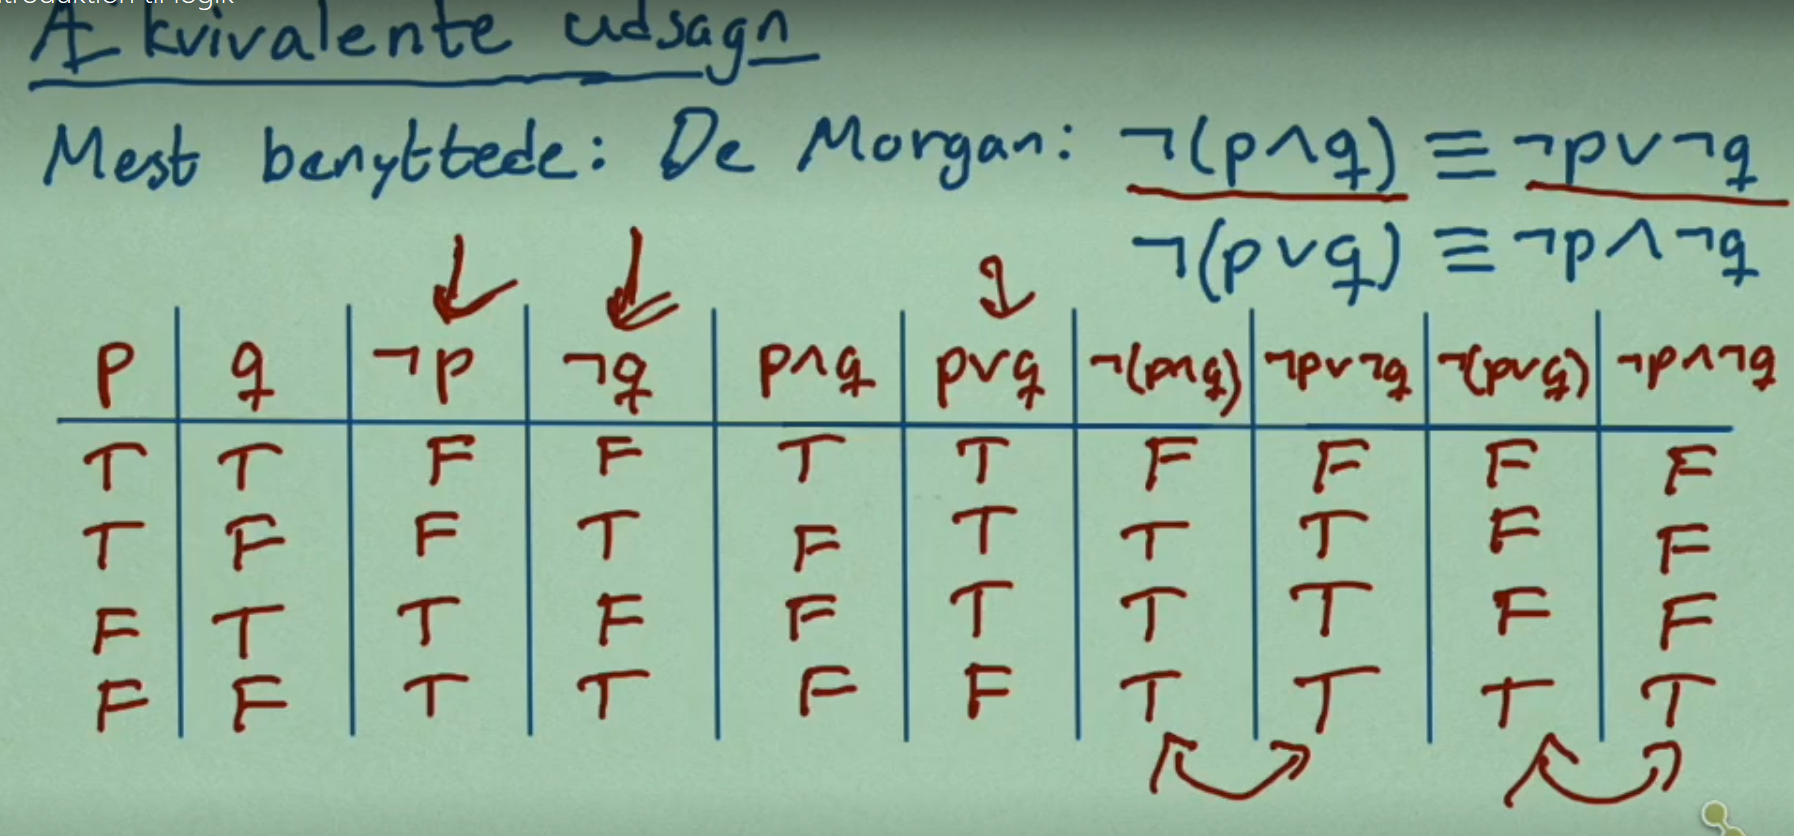 Introduktion til logik
Ækvivalente udsagn
Mest benyttede: De Morgan: ¬(p∧q) ≡ ¬p∨¬q
¬(p∨q) ≡ ¬p∧¬q
p q ¬p ¬q p∧q p∨q ¬(p∧q) ¬p∨¬q ¬(p∨q) ¬p∧¬q
T T F F T T F F F F
T F F T F T T T F F
F T T F F T T T F F
F F T T F F T T T T